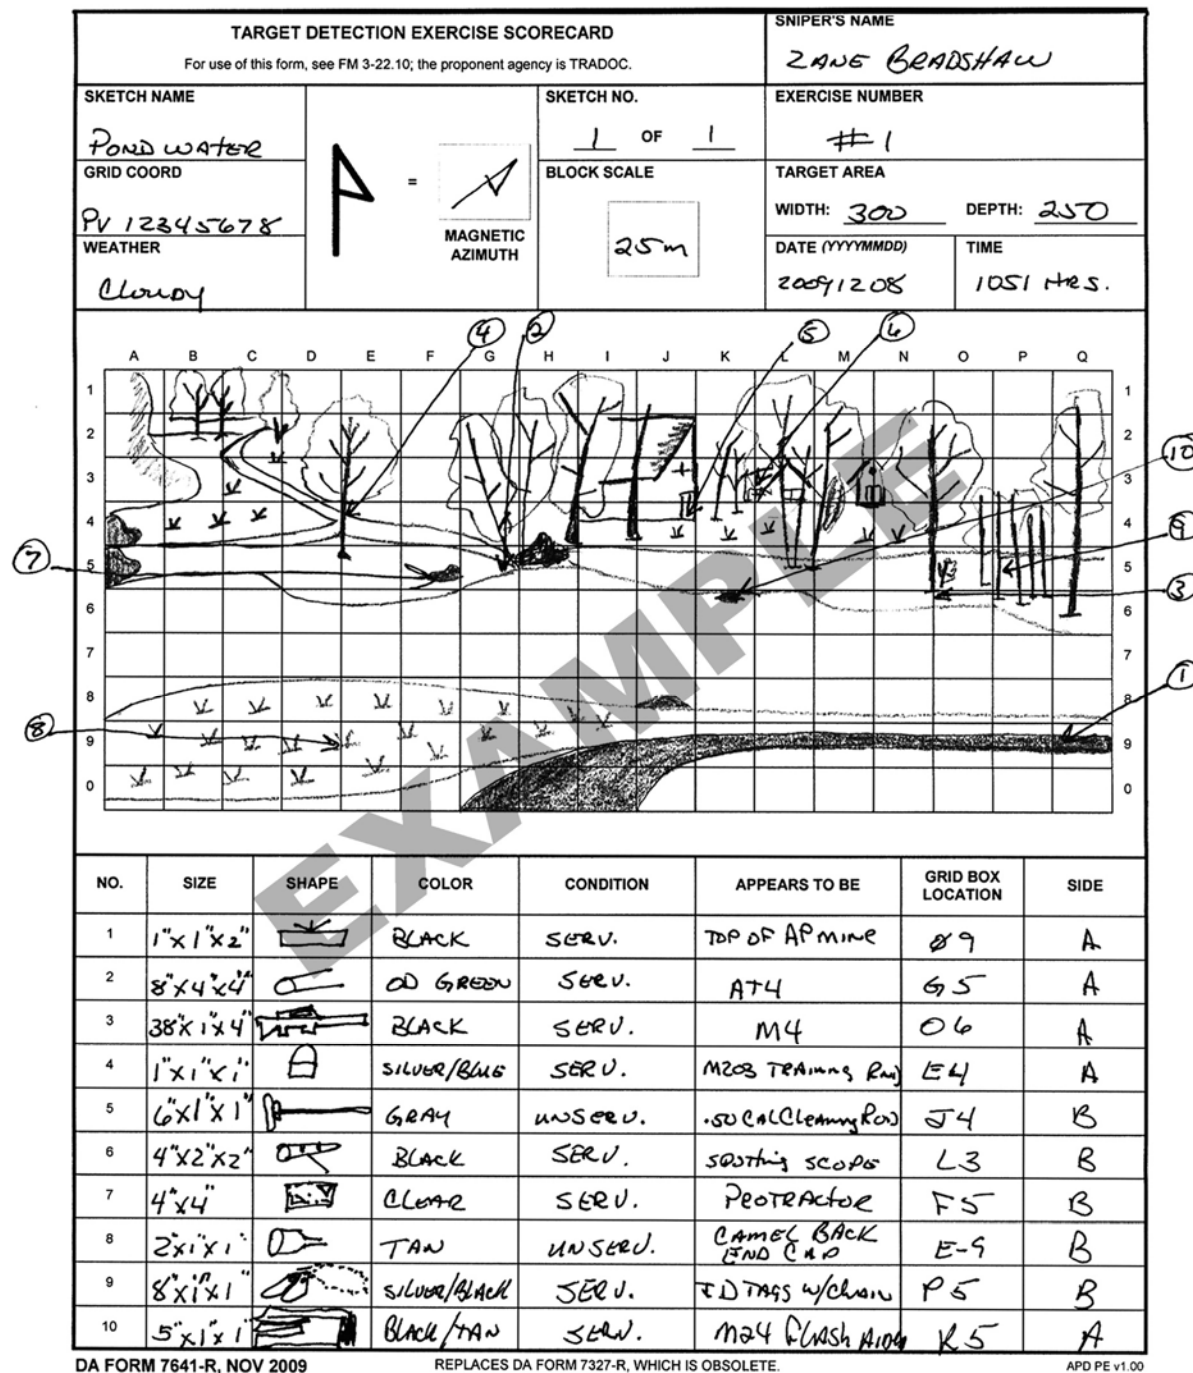 TARGET DETECTION EXERCISE SCORECARD
For use of this form, see FM 3-22.10; the proponent agency is TRADOC.
SNIPER'S NAME
ZANE BRADSHAW
SKETCH NAME
POND WATER
GRID COORD
PV 12345678
WEATHER
Cloudy
=
MAGNETIC
AZIMUTH
SKETCH NO.
1 OF 1
BLOCK SCALE
25m
EXERCISE NUMBER
#1
TARGET AREA
WIDTH: 300 DEPTH: 250
DATE (YYYYMMDD)
20091208
TIME
1051 HRS.
4 2 5 6
A B C D E F G H I J K L M N O P Q
1 1
2 2
10
3 3
4 4
9
7
5 5
3
6 6
7 7
1
8 8
8
9 9
0 0
EXAMPLE
NO. SIZE SHAPE COLOR CONDITION APPEARS TO BE GRID BOX LOCATION SIDE
1 1"x1"x2" BLACK SERV. TOP OF AP MINE Ø9 A
2 8"x4"x4" OD GREEN SERV. AT4 G5 A
3 38"x1"x4" BLACK SERV. M4 O6 A
4 1"x1"x1" SILVER/BLUE SERV. M203 TRAINING RND E4 A
5 6"x1"x1" GRAY UNSERV. .50 CAL Cleaning Rod J4 B
6 4"x2"x2" BLACK SERV. SPOTTING SCOPE L3 B
7 4"x4" CLEAR SERV. PROTRACTOR F5 B
8 2"x1"x1" TAN UNSERV. CAMEL BACK END CAP E-9 B
9 8"x1"x1" SILVER/BLACK SERV. ID TAGS W/Chain P5 B
10 5"x1"x1" BLACK/TAN SERV. M24 FLASH K5 A
DA FORM 7641-R, NOV 2009 REPLACES DA FORM 7327-R, WHICH IS OBSOLETE. APD PE v1.00